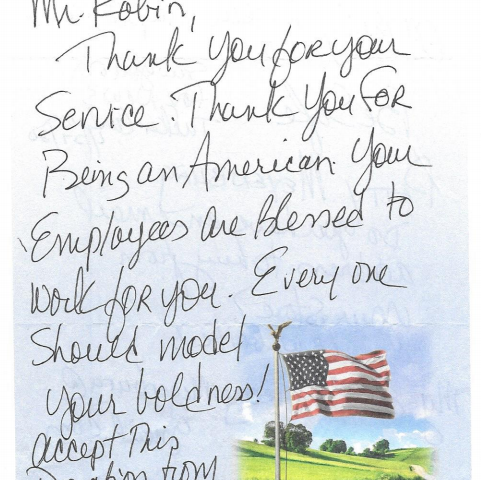 Mr. Robin,
Thank you for your
Service. Thank you For
Being an American. Your
Employees are Blessed to
work for you. Every one
Should model
your boldness!
accept This
Donation from